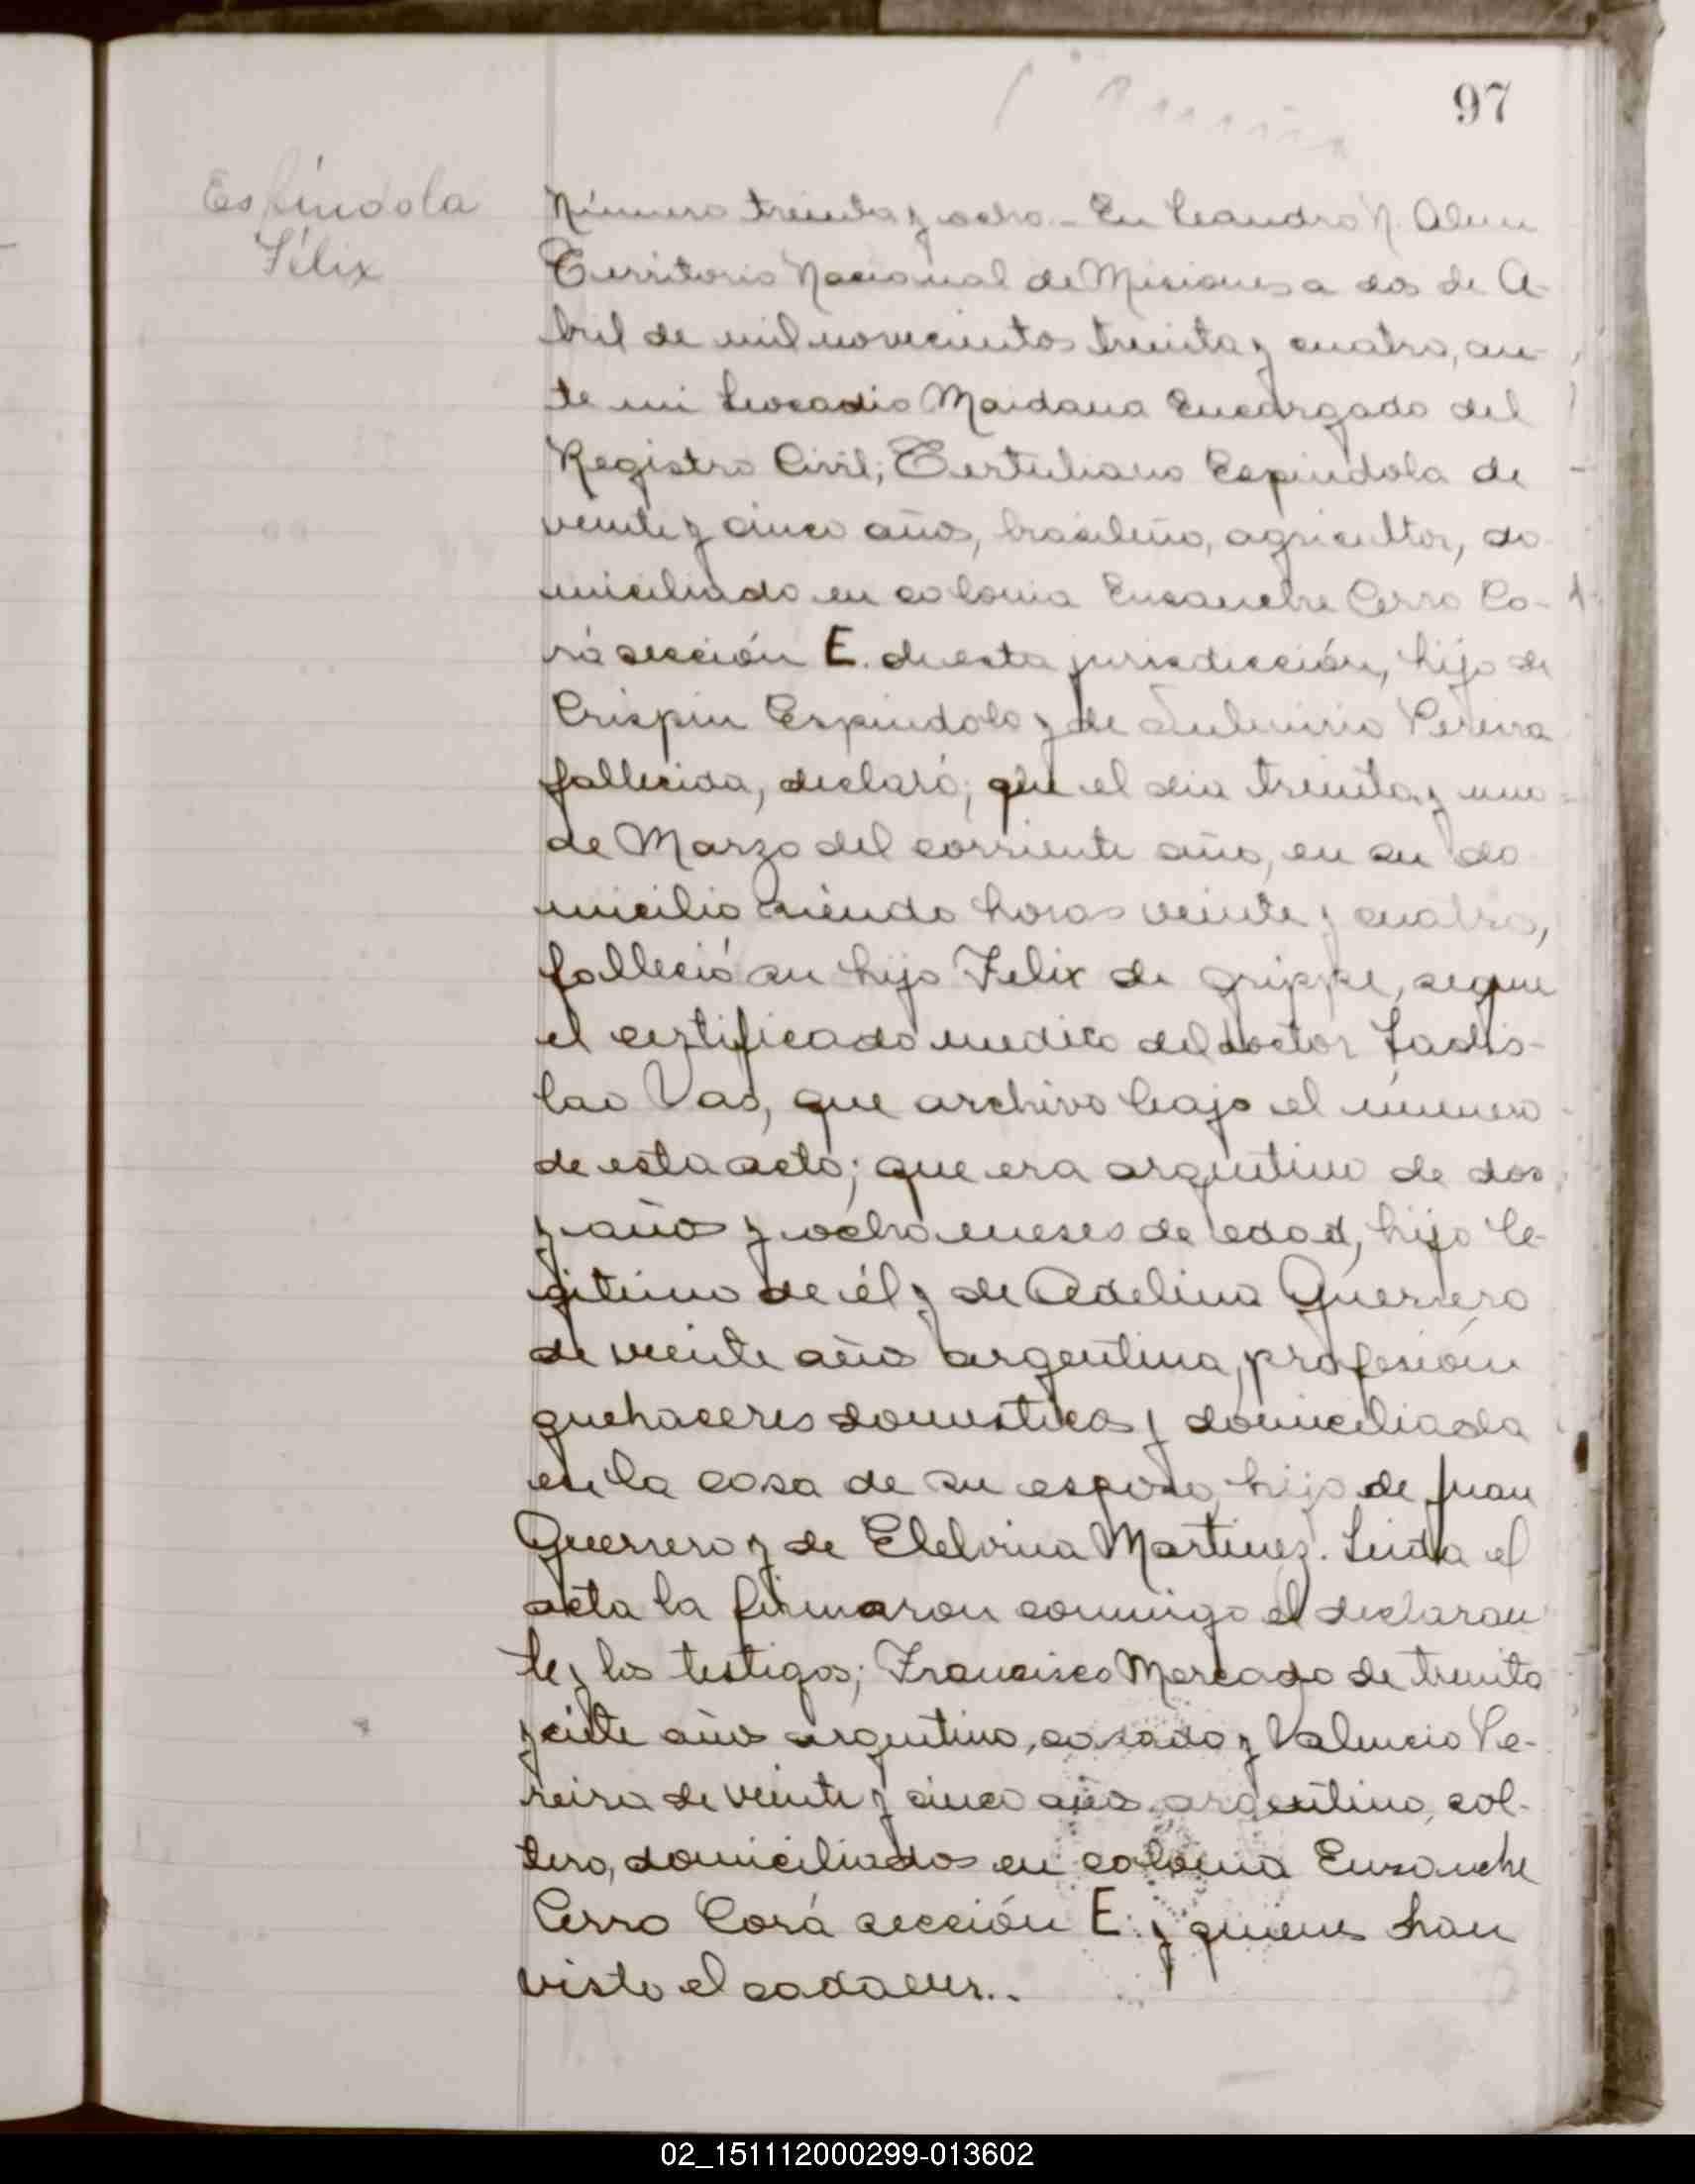 97
Espíndola
Félix
Número treinta y ocho. - En Leandro N. Alem
Territorio Nacional de Misiones a dos de A-
bril de mil novecientos treinta y cuatro, an-
te mi Leocadio Maidana Encargado del
Registro Civil; Tertuliano Espindola de
veinte y cinco años, brasileño, agricultor, do
miciliado en colonia Ensanche Cerro Co-
rá sección E. de esta jurisdicción, hijo de
Crispin Espindola y de Pereira
fallecida, declaró; que el dia treinta y uno
de Marzo del corriente año, en su do
micilio siendo horas veinte y cuatro,
falleció su hijo Felix de grippe, segun
el certificado medico del doctor Ladis-
lao Vas, que archivo bajo el número
de esta acta; que era argentino de dos
y años y ocho meses de edad, hijo le-
gitimo de él y de Adelina Guerrero
de veinte años argentina, profesión
quehaceres domesticos y domiciliada
en la casa de su esposo, hija de Juan
Guerrero y de Eleloina Martinez. Leida el
acta la firmaron conmigo el declaran
te y los testigos; Francisco Mercado de treinta
y siete años argentino, casado y Valencio Pe-
reira de veinte y cinco años argentino, sol-
tero, domiciliados en colonia Ensanche
Cerro Corá sección E. y quienes han
visto el cadaver..
02_151112000299-013602